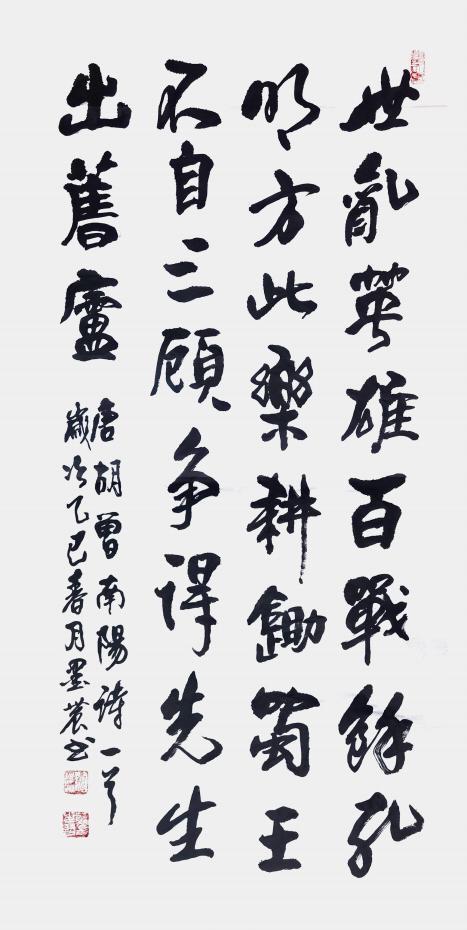 世亂英雄百戰餘孔
明方此樂耕鋤蜀王
不自三顧争得先生
出舊廬
唐胡曾南陽詩一首
歲次乙巳春月墨農书